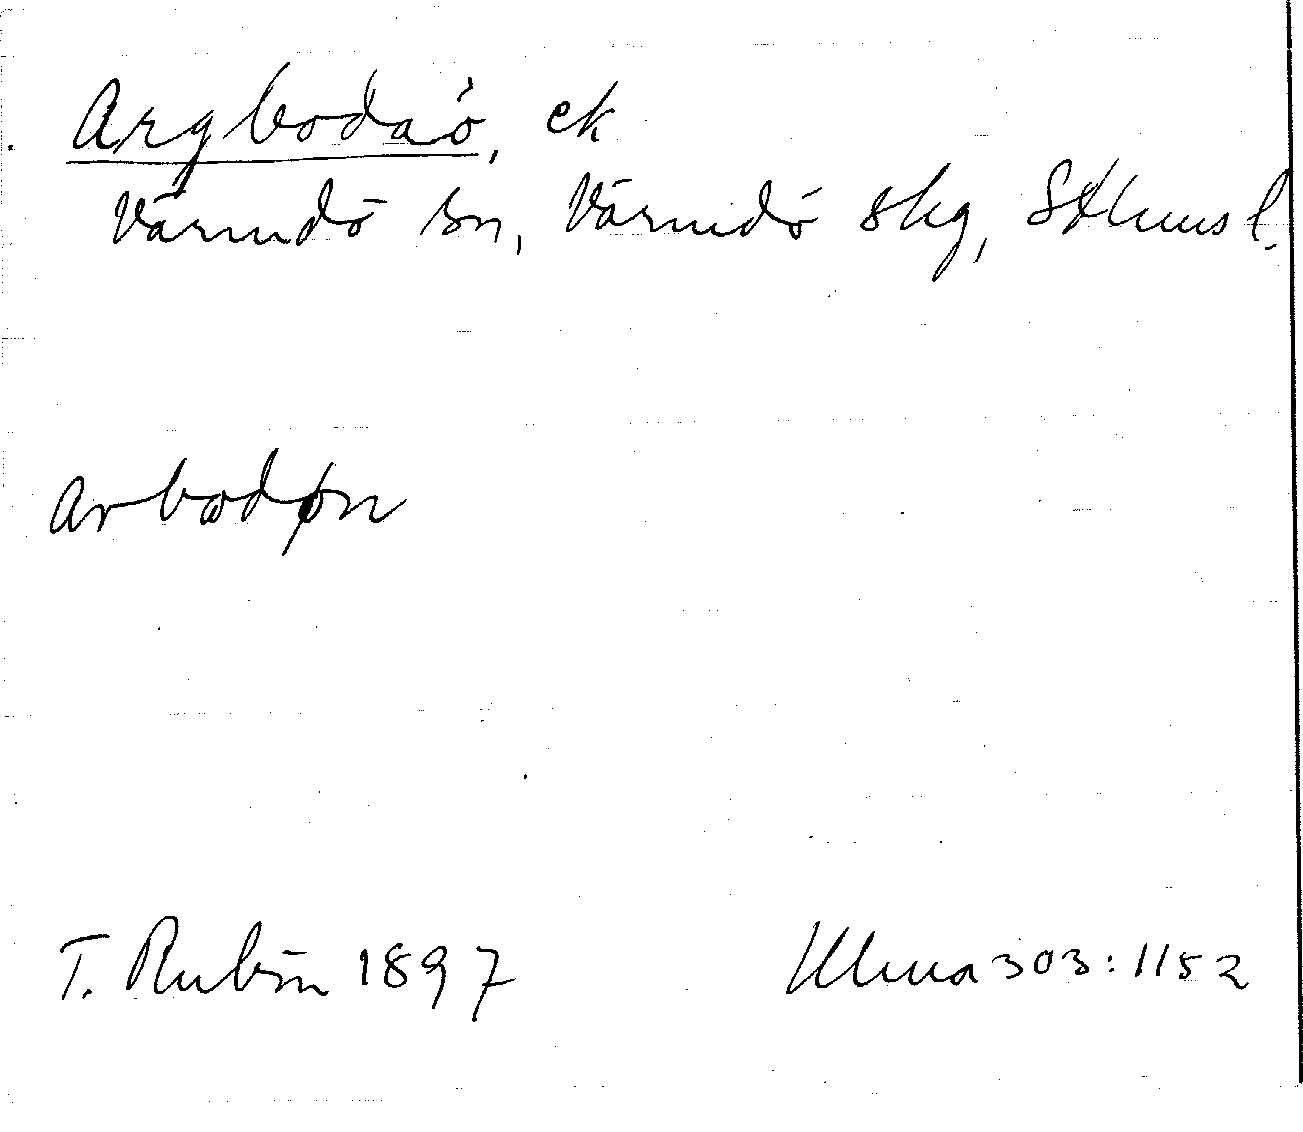 Argbodaö, ek
Värmdö sn, Värmdö skg, Sthms l.
arbodøn
T. Rubin 1897
Ulma 303:1152